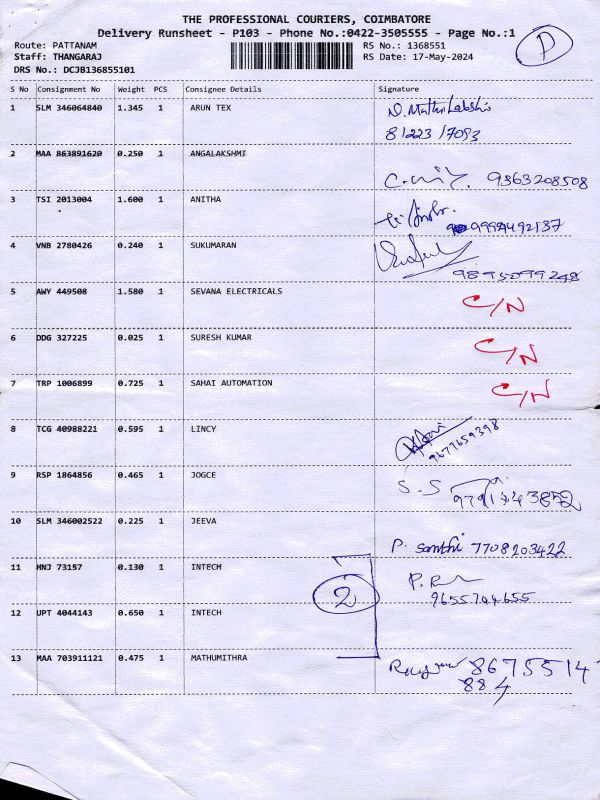 THE PROFESSIONAL COURIERS, COIMBATORE
Delivery Runsheet - P103 - Phone No.:0422-3505555 - Page No.:1
P
Route: PATTANAM
RS No.: 1368551
Staff: THANGARAJ
RS Date: 17-May-2024
DRS No.: DCJB136855101
S No Consignment No Weight PCS Consignee Details Signature
1 SLM 346064840 1.345 1 ARUN TEX
81223 17093
2 MAA 863891620 0.250 1 ANGALAKSHMI
9363208508
3 TSI 2013004 1.600 1 ANITHA
9994492137
4 VNB 2780426 0.240 1 SUKUMARAN
9895099248
5 AWY 449508 1.580 1 SEVANA ELECTRICALS C/N
6 DDG 327225 0.025 1 SURESH KUMAR C/N
7 TRP 1006899 0.725 1 SAHAI AUTOMATION C/N
8 TCG 40988221 0.595 1 LINCY
9677659398
9 RSP 1864856 0.465 1 JOGCE S.S
10 SLM 346002522 0.225 1 JEEVA
P. Santhi 7708203422
11 MNJ 73157 0.130 1 INTECH
2
9655744655
12 UPT 4044143 0.650 1 INTECH
13 MAA 703911121 0.475 1 MATHUMITHRA 8675514
884